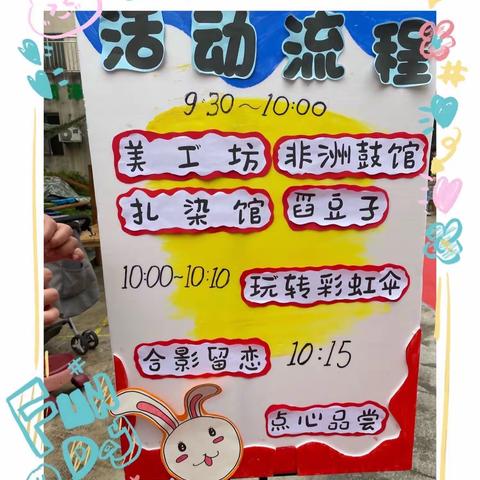 活动流程
9:30~10:00
美工坊 非洲鼓馆
扎染馆 舀豆子
10:00~10:10 玩转彩虹伞
合影留恋 10:15
点心品尝
Fun
Day